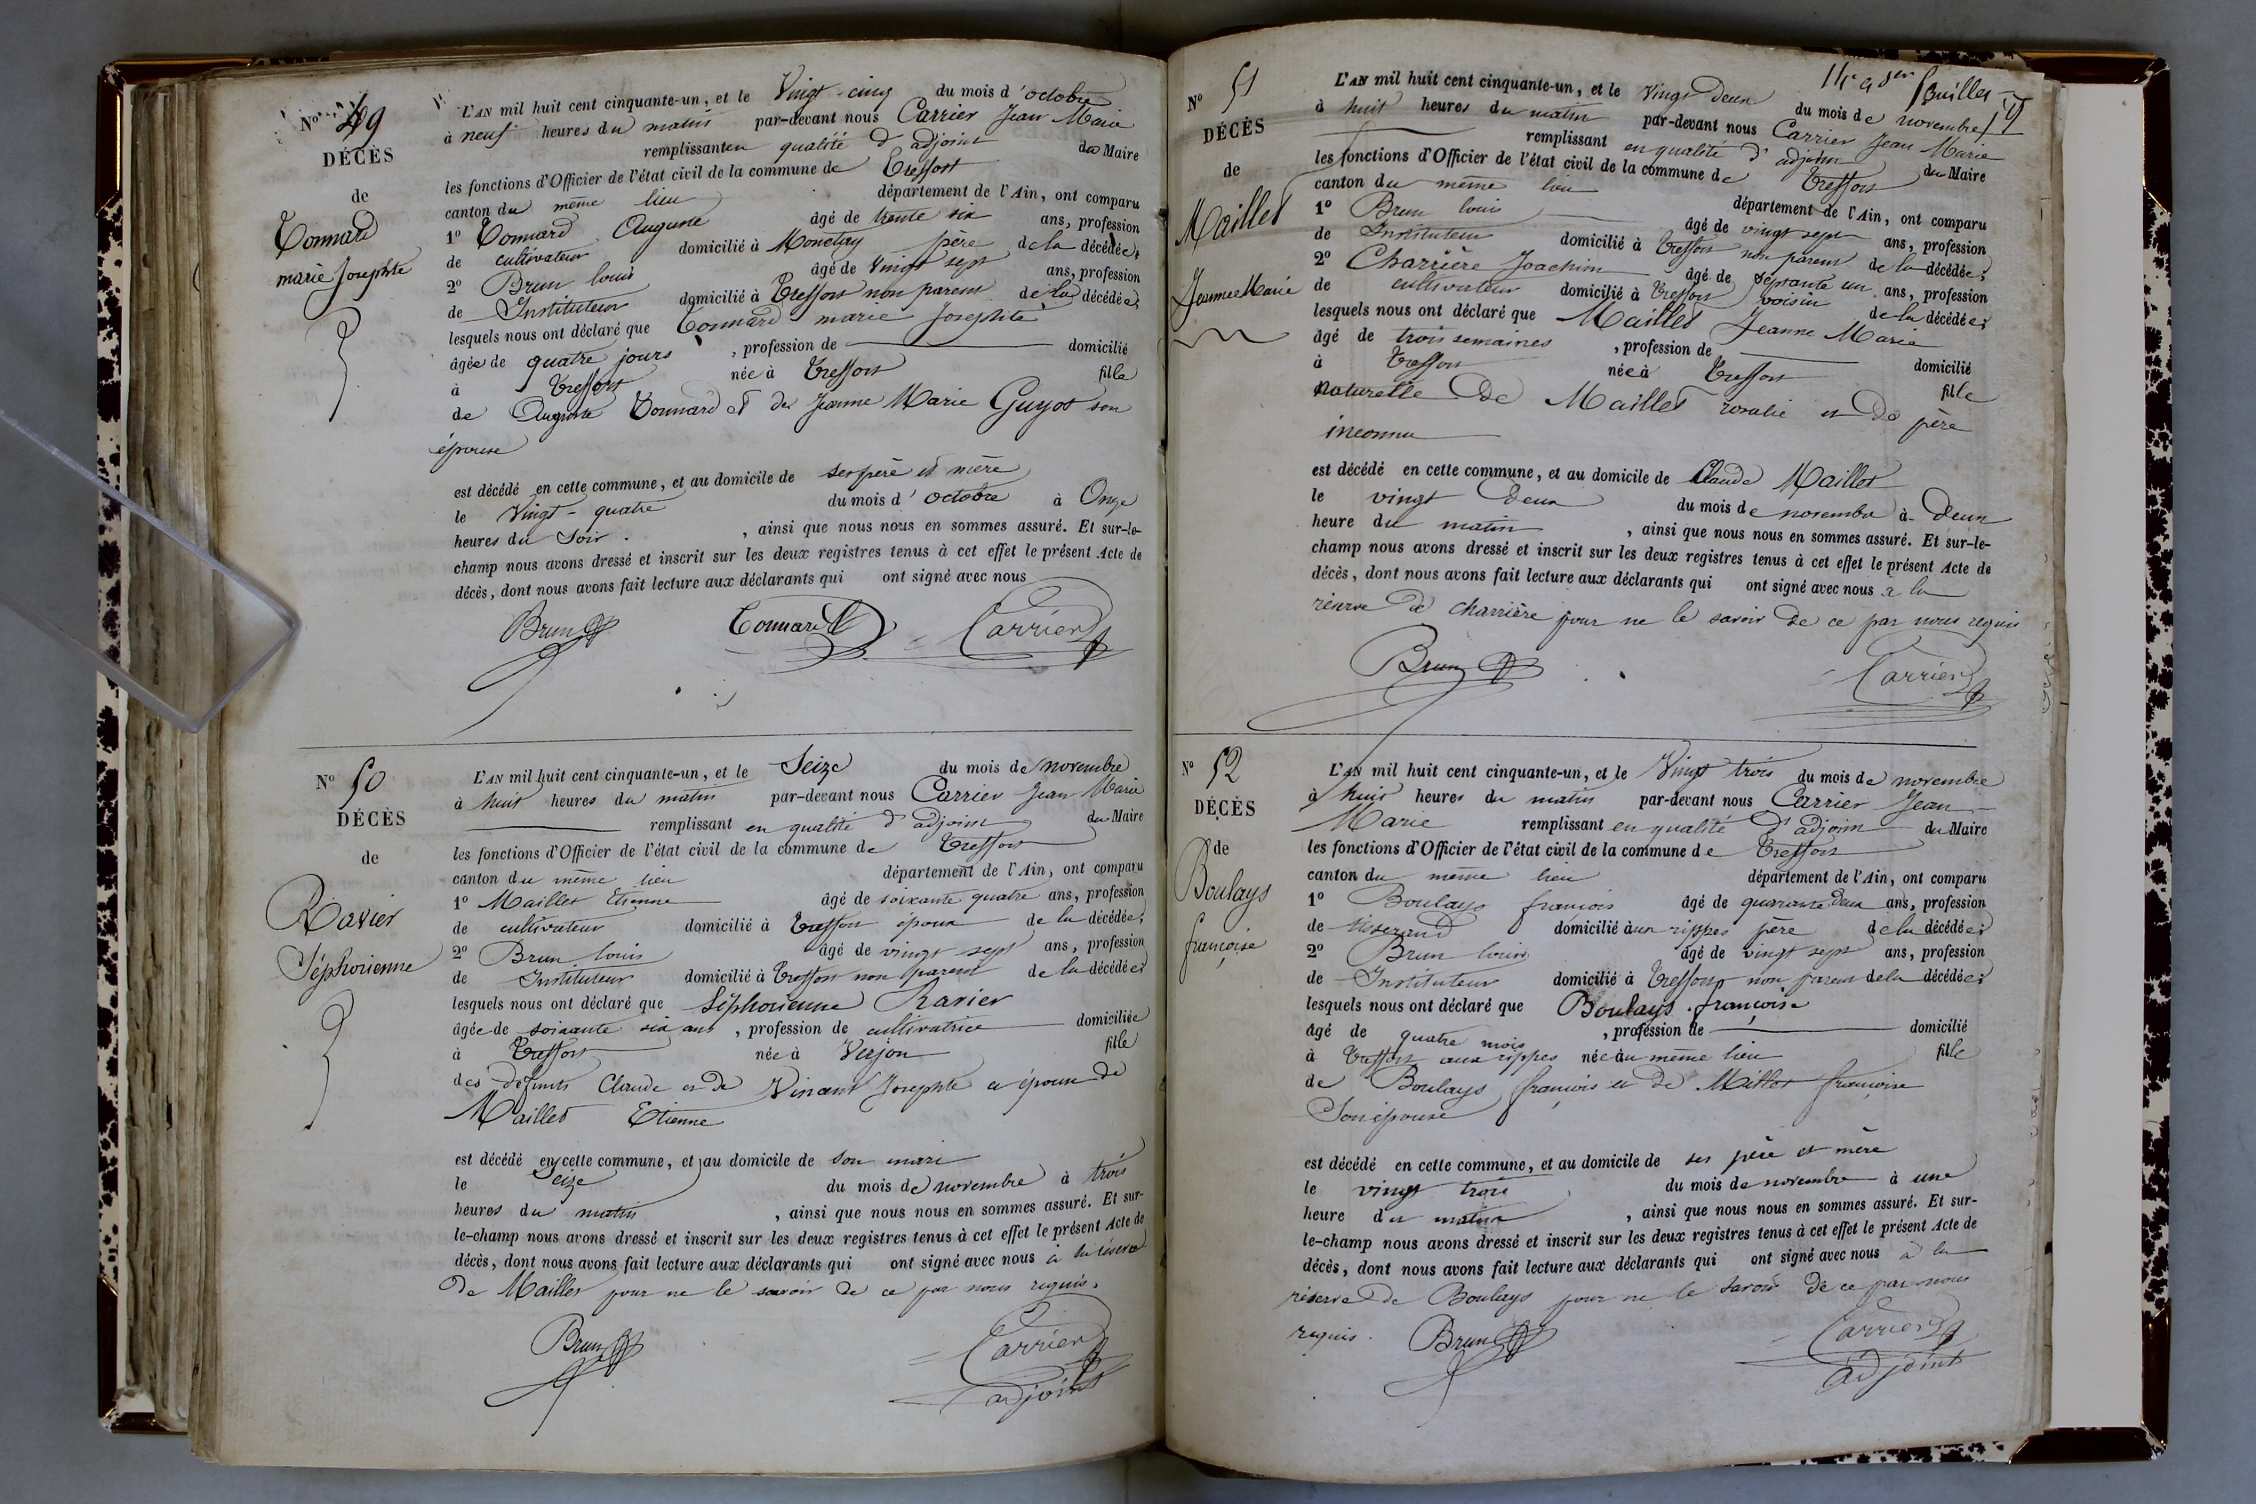 No 49
DÉCÈS
de
Tonnard
marie Josephte
L'AN mil huit cent cinquante-un, et le Vingt-cinq du mois d'octobre
à neuf heures du matin par-devant nous Carrier Jean Marie
remplissant en qualité d'adjoint du Maire
les fonctions d'Officier de l'état civil de la commune de Treffort
canton du même lieu département de l'Ain, ont comparu
1o Tonnard Auguste âgé de trente six ans, profession
de cultivateur domicilié à père de la décédée;
2o Brun louis âgé de Vingt sept ans, profession
de Instituteur domicilié à Treffort non parent de la décédée;
lesquels nous ont déclaré que Tonnard marie Josephte
âgée de quatre jours, profession de domicilié
à Treffort née à Treffort fille
de Auguste Tonnard et de Jeanne Marie Guyot son
épouse
est décédé en cette commune, et au domicile de ses père et mère
le Vingt-quatre du mois d'octobre à Onze
heures du Soir, ainsi que nous nous en sommes assuré. Et sur-le-
champ nous avons dressé et inscrit sur les deux registres tenus à cet effet le présent Acte de
décès, dont nous avons fait lecture aux déclarants qui ont signé avec nous
Brun Tonnard Carrier
No 50
DÉCÈS
de
Ravier
Séphorienne
L'AN mil huit cent cinquante-un, et le Seize du mois de novembre
à huit heures du matin par-devant nous Carrier Jean Marie
remplissant en qualité d'adjoint du Maire
les fonctions d'Officier de l'état civil de la commune de Treffort
canton du même lieu département de l'Ain, ont comparu
1o Maillet Etienne âgé de soixante quatre ans, profession
de cultivateur domicilié à Treffort époux de la décédée;
2o Brun louis âgé de vingt sept ans, profession
de Instituteur domicilié à Treffort non parent de la décédée;
lesquels nous ont déclaré que Séphorienne Ravier
âgée de soixante six ans, profession de cultivatrice domiciliée
à Treffort née à Verjon fille
des défunts Claude et de Vincent Josephte et épouse de
Maillet Etienne
est décédé en cette commune, et au domicile de son mari
le Seize du mois de novembre à trois
heures du matin, ainsi que nous nous en sommes assuré. Et sur-
le-champ nous avons dressé et inscrit sur les deux registres tenus à cet effet le présent Acte de
décès, dont nous avons fait lecture aux déclarants qui ont signé avec nous à la réserve
de Maillet pour ne le savoir de ce par nous requis.
Brun Carrier
adjoint
No 51
DÉCÈS
de
Maillet
Jeanne Marie
feuillet
L'AN mil huit cent cinquante-un, et le Vingt Deux du mois de novembre
à huit heures du matin par-devant nous Carrier Jean Marie
remplissant en qualité d'adjoint du Maire
les fonctions d'Officier de l'état civil de la commune de Treffort
canton du même lieu département de l'Ain, ont comparu
1o Brun louis âgé de vingt sept ans, profession
de Instituteur domicilié à Treffort non parent de la décédée;
2o Charrière Joachim âgé de septante un ans, profession
de cultivateur domicilié à Treffort voisin de la décédée;
lesquels nous ont déclaré que Maillet Jeanne Marie
âgé de trois semaines, profession de domicilié
à Treffort née à Treffort fille
naturelle de Maillet rosalie et de père
inconnu
est décédé en cette commune, et au domicile de Claude Maillet
le vingt deux du mois de novembre à Deux
heure du matin, ainsi que nous nous en sommes assuré. Et sur-le-
champ nous avons dressé et inscrit sur les deux registres tenus à cet effet le présent Acte de
décès, dont nous avons fait lecture aux déclarants qui ont signé avec nous à la
réserve de charrière pour ne le savoir de ce par nous requis
Brun Carrier
No 52
DÉCÈS
de
Boulays
françoise
L'AN mil huit cent cinquante-un, et le Vingt trois du mois de novembre
à huit heures du matin par-devant nous Carrier Jean
Marie remplissant en qualité d'adjoint du Maire
les fonctions d'Officier de l'état civil de la commune de Treffort
canton du même lieu département de l'Ain, ont comparu
1o Boulays françois âgé de quarante deux ans, profession
de tisserand domicilié aux rippes père de la décédée;
2o Brun louis âgé de vingt sept ans, profession
de Instituteur domicilié à Treffort non parent de la décédée;
lesquels nous ont déclaré que Boulays françoise
âgé de quatre mois, profession de domicilié
à Treffort aux rippes née au même lieu fille
de Boulays françois et de Millot françoise
Son épouse
est décédé en cette commune, et au domicile de ses père et mère
le vingt trois du mois de novembre à une
heure du matin, ainsi que nous nous en sommes assuré. Et sur-
le-champ nous avons dressé et inscrit sur les deux registres tenus à cet effet le présent Acte de
décès, dont nous avons fait lecture aux déclarants qui ont signé avec nous à la
réserve de Boulays pour ne le savoir de ce par nous
requis. Brun Carrier
adjoint